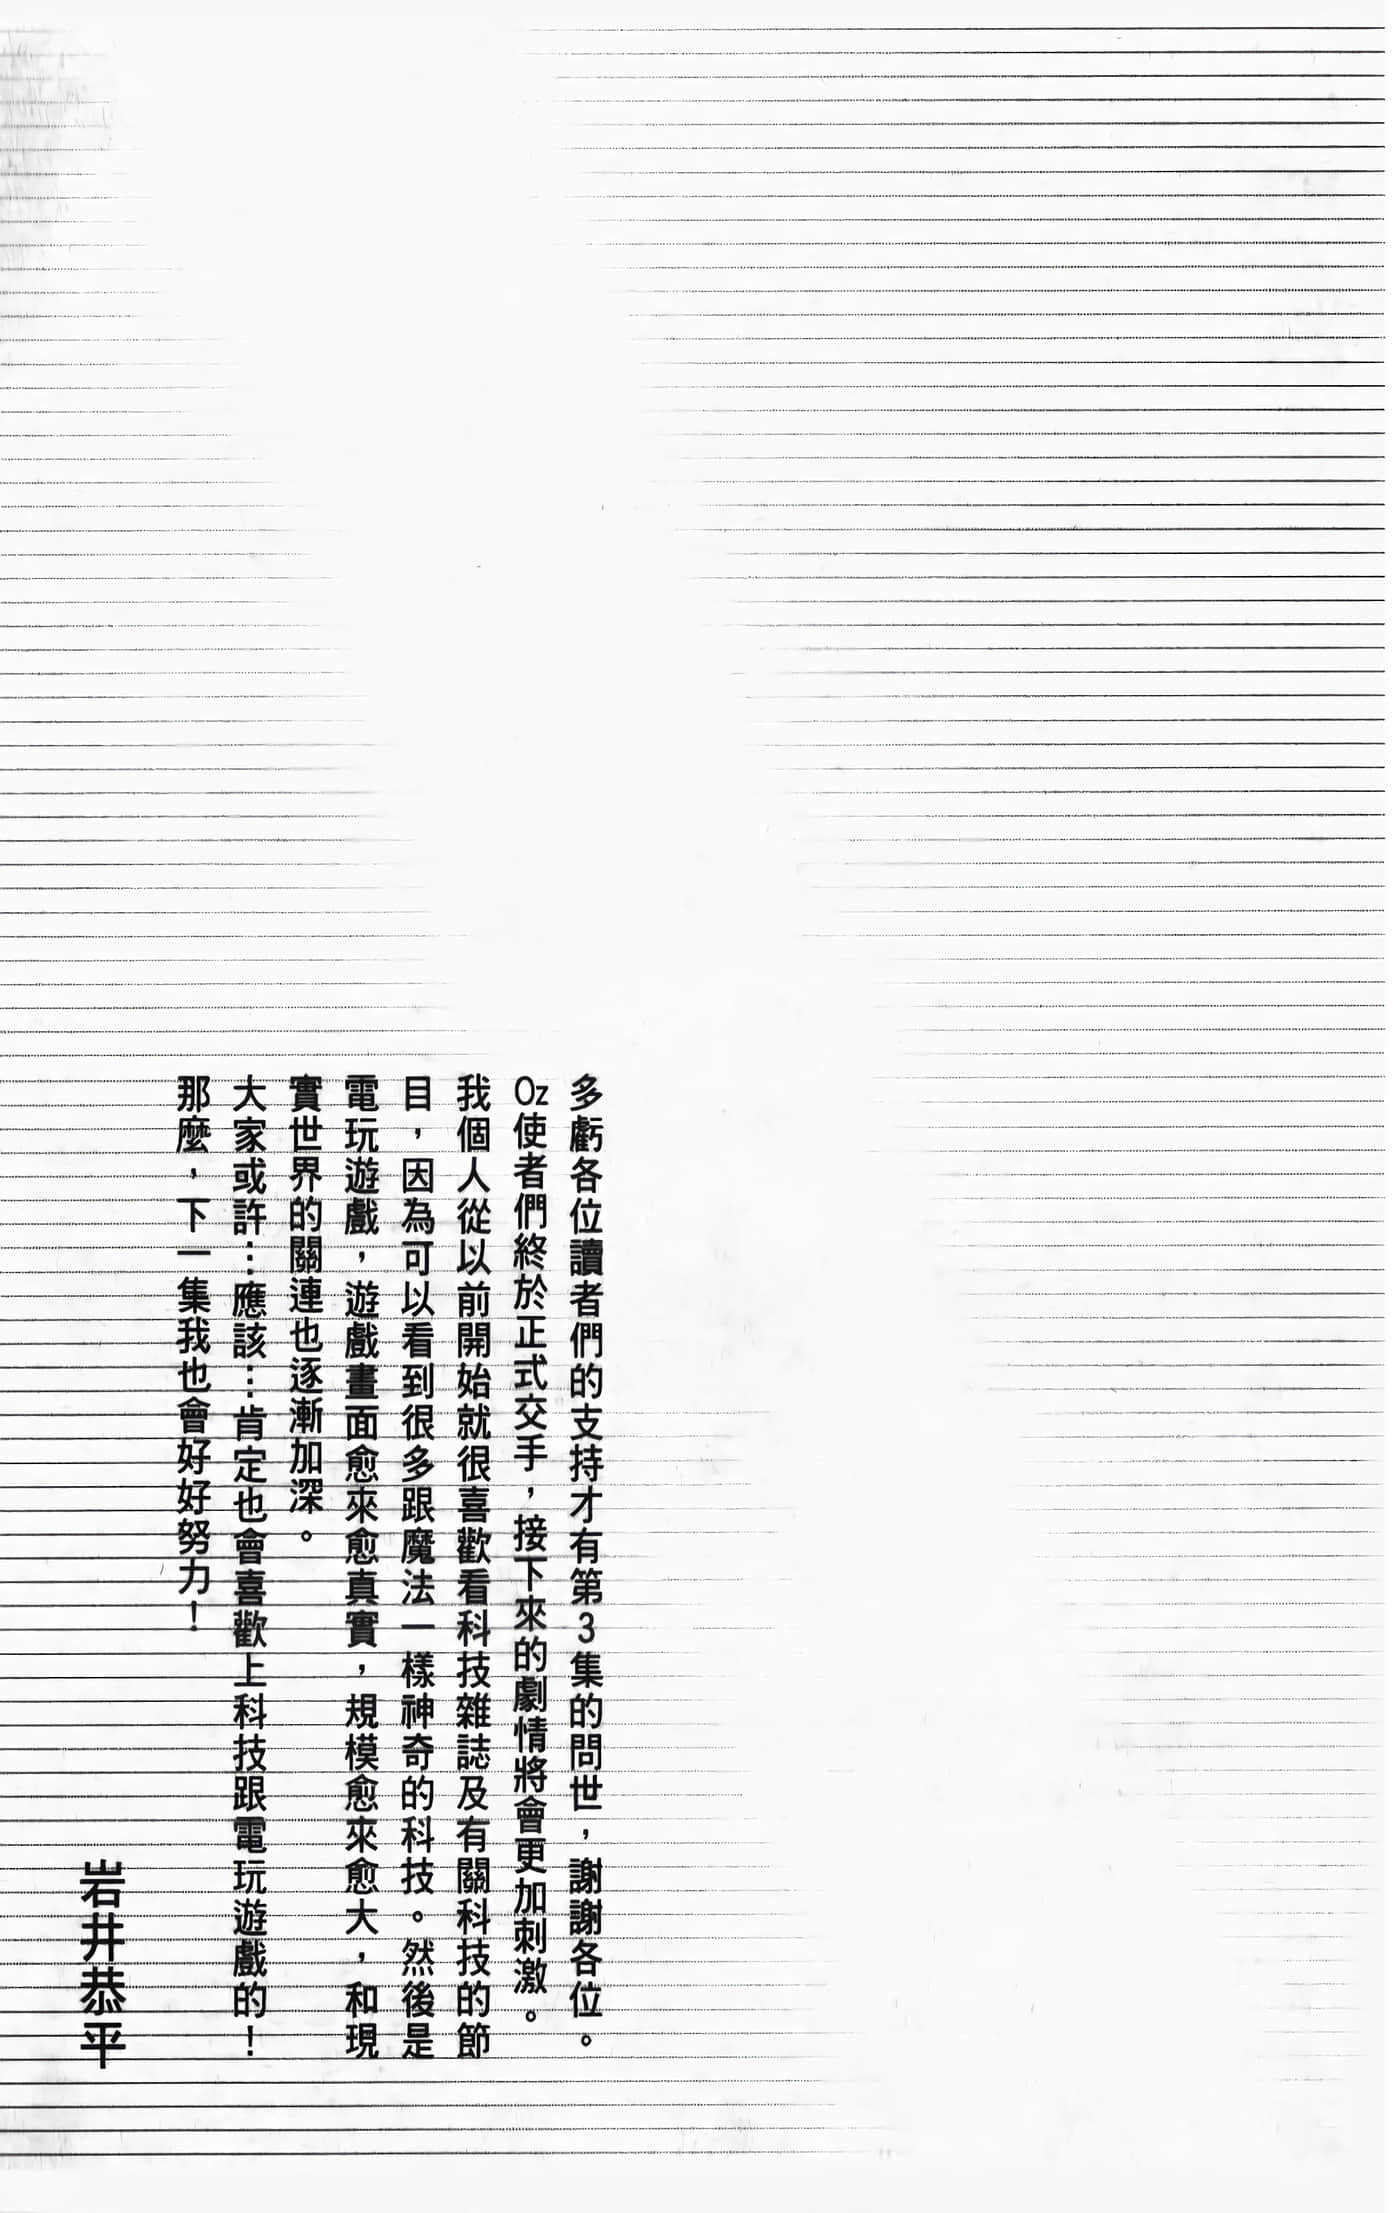 多虧各位讀者們的支持才有第3集的問世，謝謝各位。
Oz使者們終於正式交手，接下來的劇情將會更加刺激。
我個人從以前開始就很喜歡看科技雜誌及有關科技的節
目，因為可以看到很多跟魔法一樣神奇的科技。然後是
電玩遊戲，遊戲畫面愈來愈真實，規模愈來愈大，和現
實世界的關連也逐漸加深。
大家或許…應該…肯定也會喜歡上科技跟電玩遊戲的！
那麼，下一集我也會好好努力！
岩井恭平